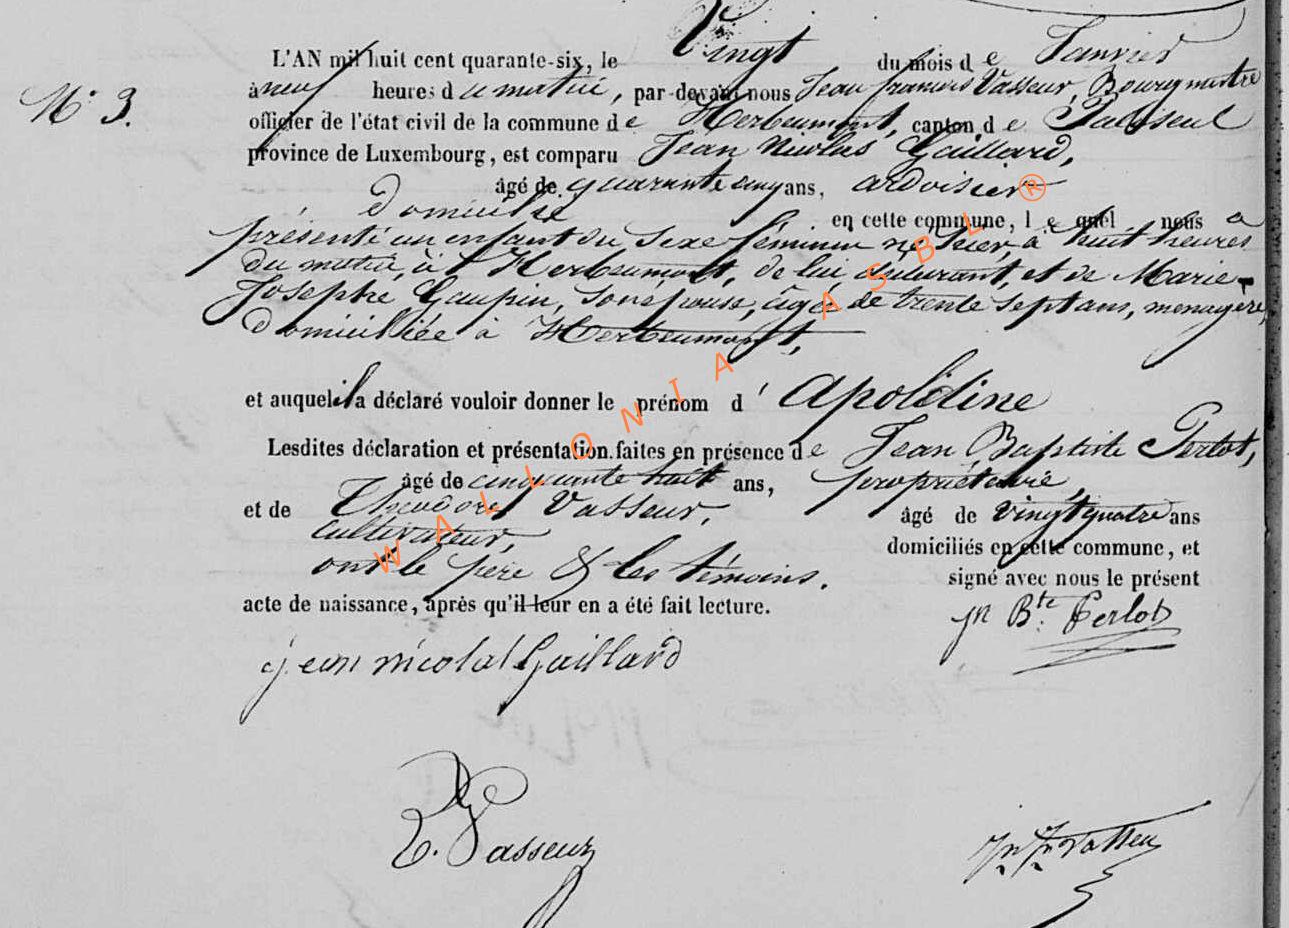 L'AN mil huit cent quarante-six, le Vingt du mois de Janvier
N° 3. à neuf heures du matin, par-devant nous Jean françois Vasseur, Bourgmestre
officier de l'état civil de la commune de Herbeumont, canton de Paliseul
province de Luxembourg, est comparu Jean Nicolas Gaillard,
âgé de quarante cinq ans, ardoisier
domicilié en cette commune, lequel nous a
présenté un enfant du sexe féminin né hier, à huit heures
du matin, à Herbeumont, de lui déclarant, et de Marie-
Josephe Gaupin, son épouse, âgée de trente sept ans, menagère,
domiciliée à Herbeumont,
et auquel il a déclaré vouloir donner le prénom d' Apolline
Lesdites déclaration et présentation faites en présence de Jean Baptiste Perlot,
âgé de cinquante huit ans, propriétaire,
et de Théodore Vasseur, âgé de vingt quatre ans
cultivateur, domiciliés en cette commune, et
ont le père & les témoins. signé avec nous le présent
acte de naissance, après qu'il leur en a été fait lecture.
Jn Bte. Perlot
jean nicolas Gaillard
T. Vasseur
Jn fr Vasseur
WALLONIA ASBL ®